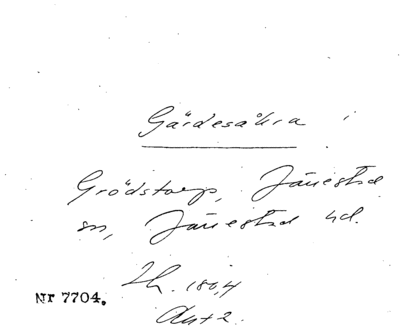 Gärdesåkra i
Grödstorp, Järrestad
sn, Järrestad hd.
180,4
Nr 7704.